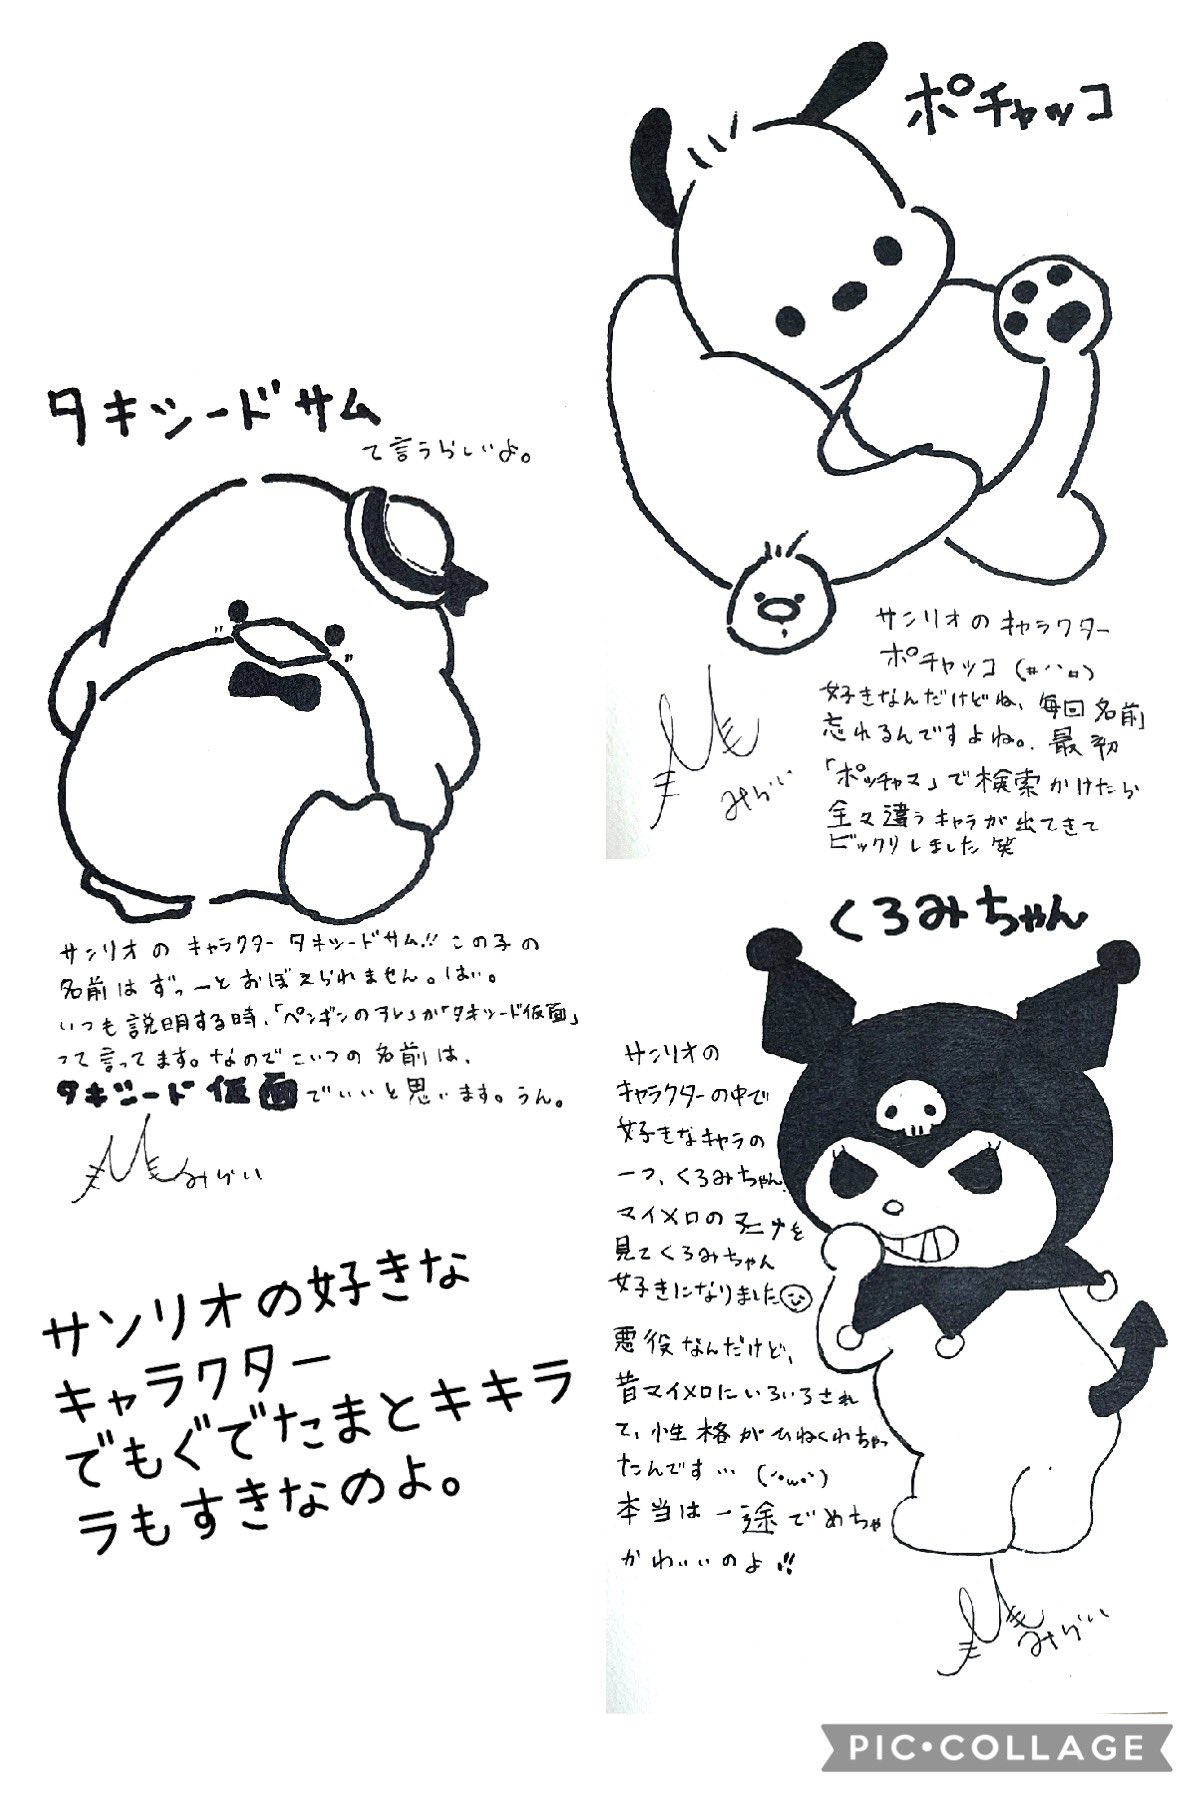 ポチャッコ
サンリオのキャラクター
ポチャッコ
好きなんだけどね、毎回名前
忘れるんですよね。最初
「ポッチャマ」で検索かけたら
全々違うキャラが出てきて
ビックリしました笑
みらい
タキシードサム
て言うらしいよ。
サンリオのキャラクター タキシードサム!! この子の
名前はずっーとおぼえられません。はい。
いつも説明する時、「ペンギンのヤレ」か「タキシード仮面」
って言ってます。なのでこいつの名前は、
タキシード仮面でいいと思います。うん。
みらい
くろみちゃん
サンリオの
キャラクターの中で
好きなキャラの
一つ、くろみちゃん。
マイメロのアニメを
見てくろみちゃん
好きになりました
悪役なんだけど、
昔マイメロにいろいろされ
て、性格がひねくれちゃっ
たんです… (´•ω•`)
本当は一途でめちゃ
かわいいのよ!!
みらい
サンリオの好きな
キャラクター
でもぐでたまとキキラ
ラもすきなのよ。
PIC•COLLAGE